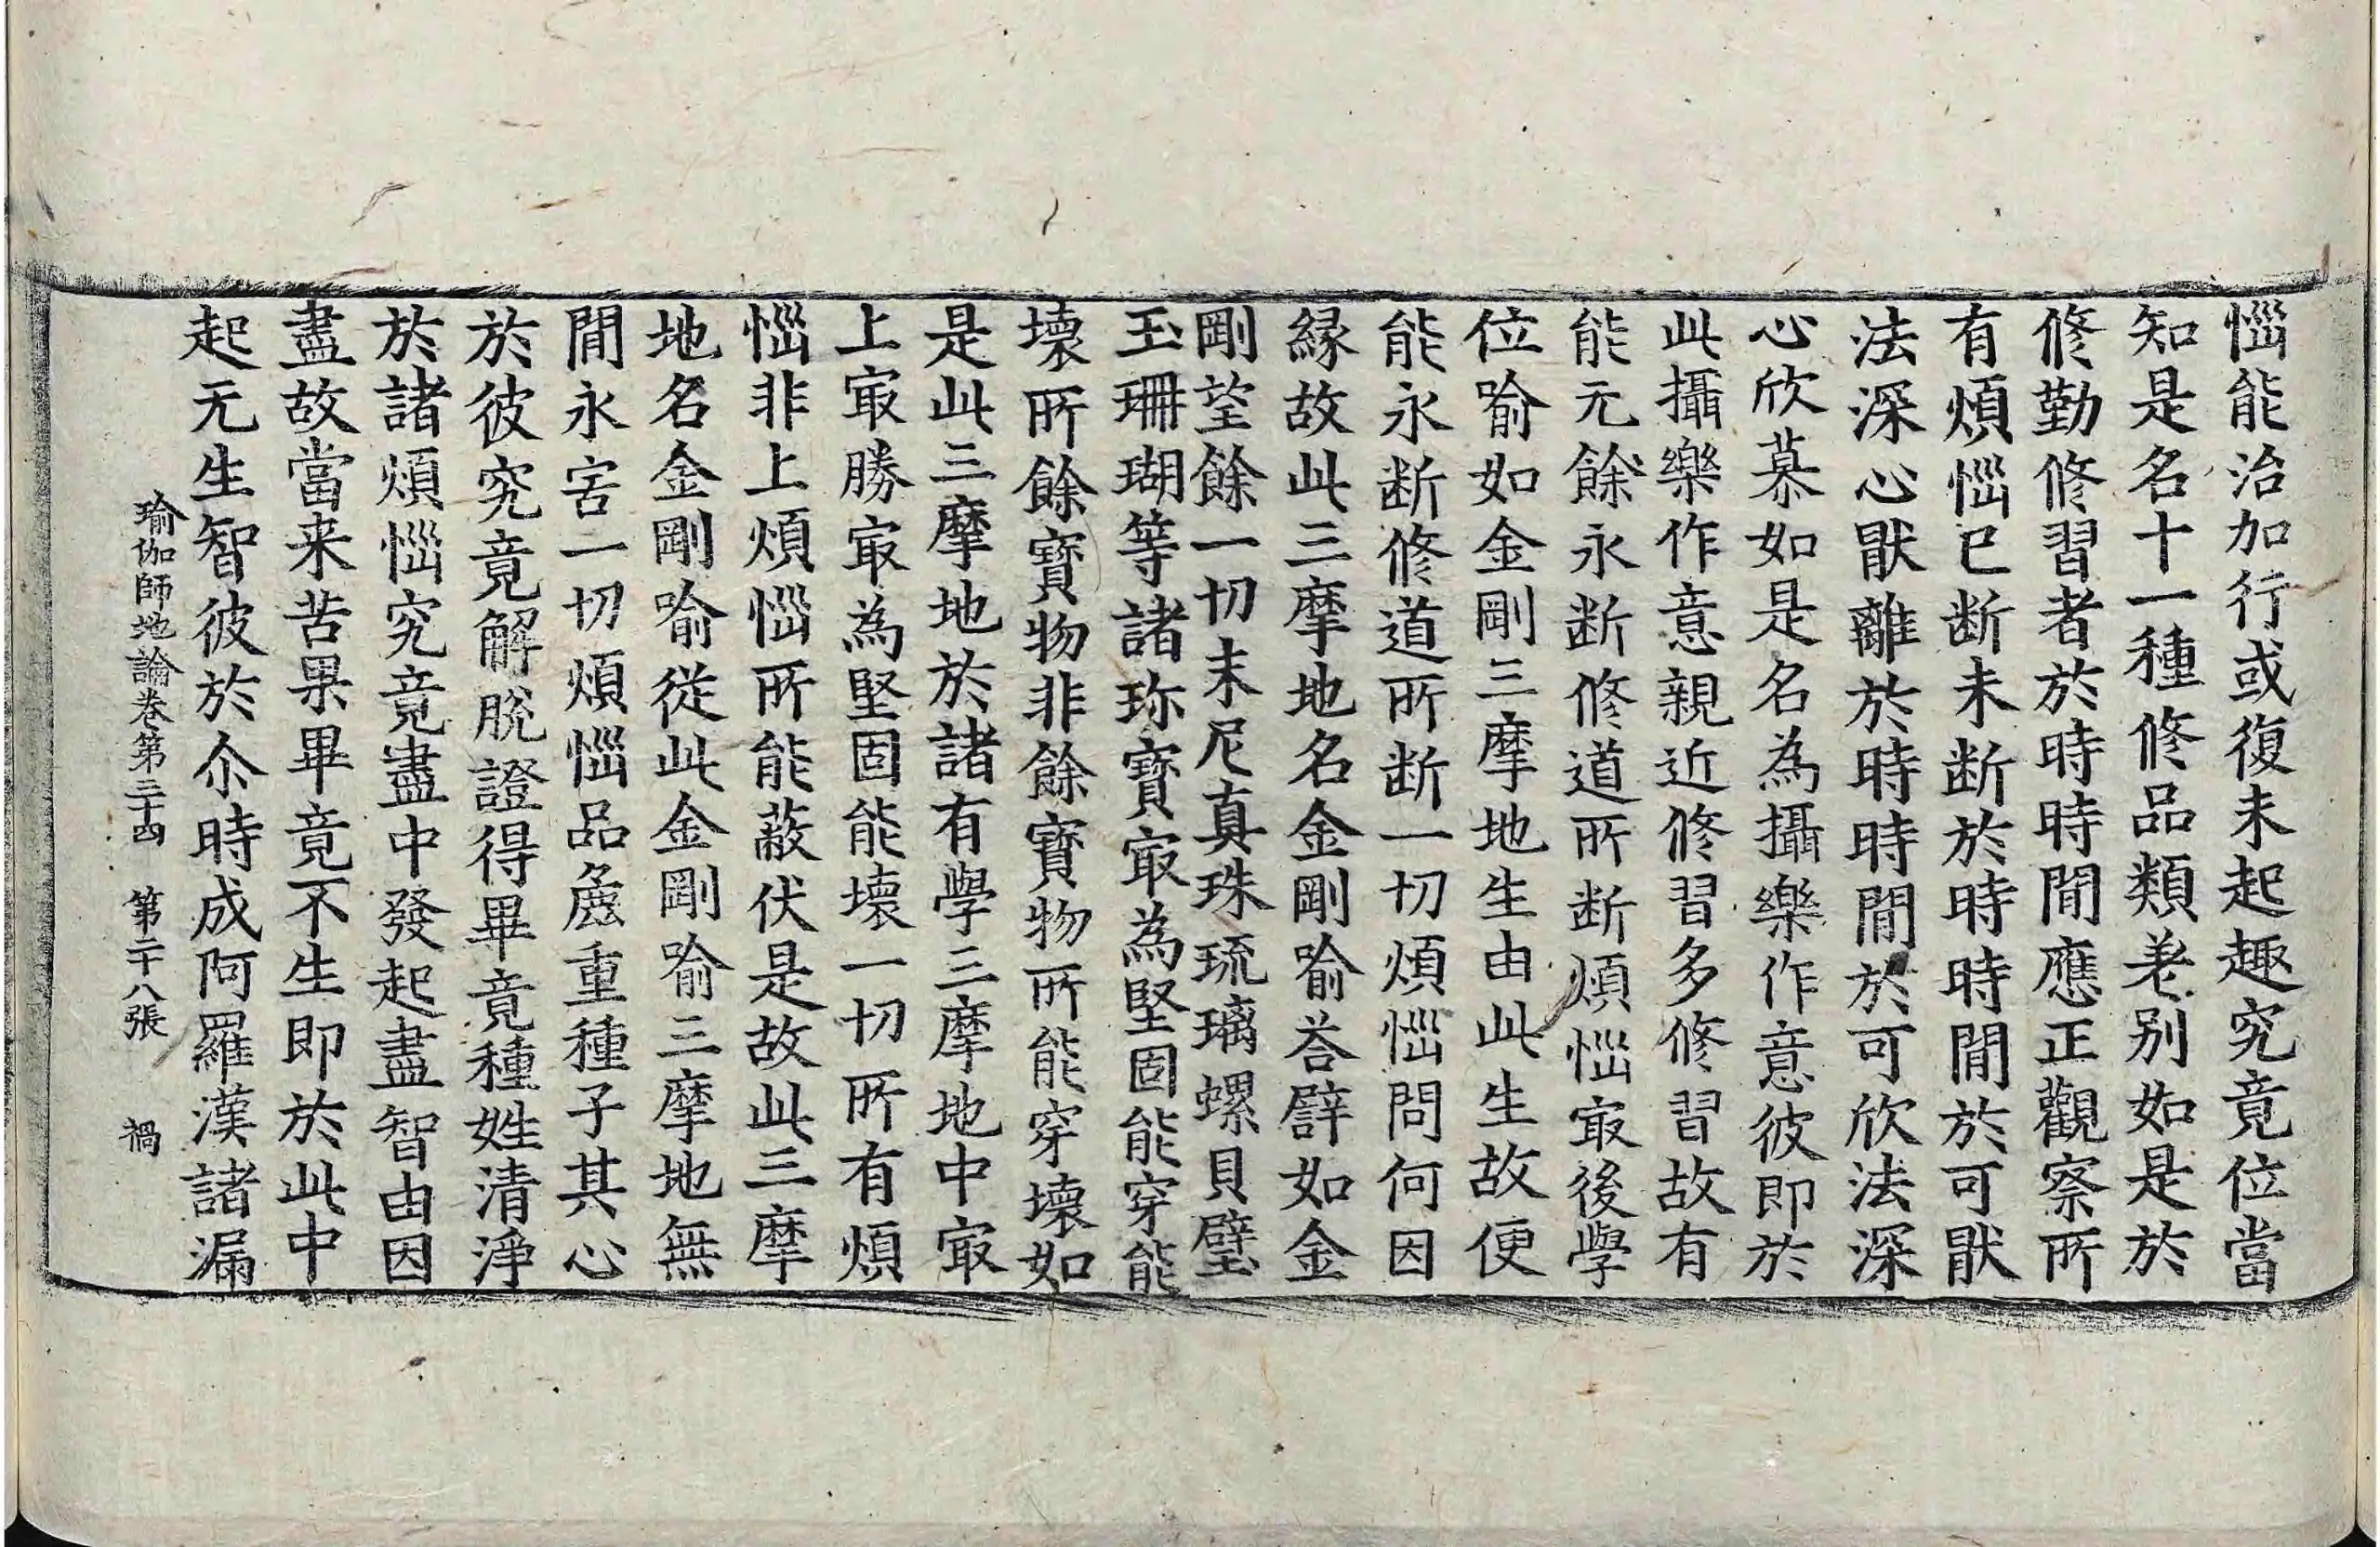 惱能治加行或復未起趣究竟位當
知是名十一種修品類差别如是於
修勤修習者於時時間應正觀察所
有煩惱已断未断於時時間於可猒
法深心猒離於時時間於可欣法深
心欣慕如是名為攝樂作意彼即於
此攝樂作意親近修習多修習故有
能无餘永断修道所断煩惱㝡後學
位喻如金剛三摩地生由此生故便
能永断修道所断一切煩惱問何因
縁故此三摩地名金剛喻荅譬如金
剛望餘一切末尼真珠琉璃螺貝璧
玉珊瑚等諸珎寶㝡為堅固能穿能
壞所餘寶物非餘寶物所能穿壞如
是此三摩地於諸有學三摩地中㝡
上㝡勝㝡為堅固能壞一切所有煩
惱非上煩惱所能蔽伏是故此三摩
地名金剛喻從此金剛喻三摩地無
間永害一切煩惱品麁重種子其心
於彼究竟解脫證得畢竟種姓清淨
於諸煩惱究竟盡中發起盡智由因
盡故當来苦果畢竟不生即於此中
起无生智彼於尒時成阿羅漢諸漏
瑜伽師地論卷第三十四 第二十八張 禍